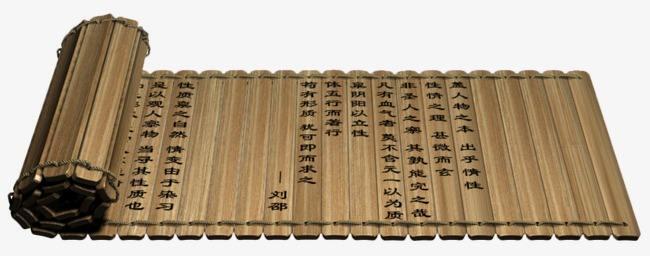 盖人物之本 出乎情性
性情之理 甚微而玄
非圣人之察 其孰能究之哉
凡有血气者 莫不含元一以为质
禀阴阳以立性
体五行而著行
苟有形质 犹可即而求之
—刘邵
性质禀之自然 情变由于染习
是以观人察物 当寻其性质也